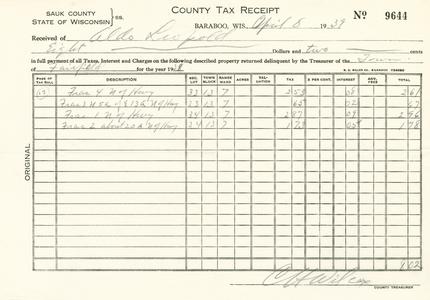 SAUK COUNTY
STATE OF WISCONSIN } ss.
COUNTY TAX RECEIPT
BARABOO, WIS. April 8 1939 No 9644
Received of Aldo Leopold
Eight Dollars and two cents
in full payment of all Taxes, Interest and Charges on the following described property returned delinquent by the Treasurer of the Town
of Fairfield for the year 1938
PAGE OF TAX ROLL DESCRIPTION SEC. LOT TOWN BLOCK RANGE WARD ACRES VALUATION TAX 2 PER CENT. INTEREST ADV. FEES TOTAL
Frac 4 N of Hwy 33 13 7 2 53 08 2 61
33 13 7 65 02 67
Frac 1 N of Hwy 34 13 7 2 87 09 2 96
Frac 2 about 20 a N of Hwy 34 13 7 1 73 05 1 78
8 02
ORIGINAL
C H Wilcox
COUNTY TREASURER